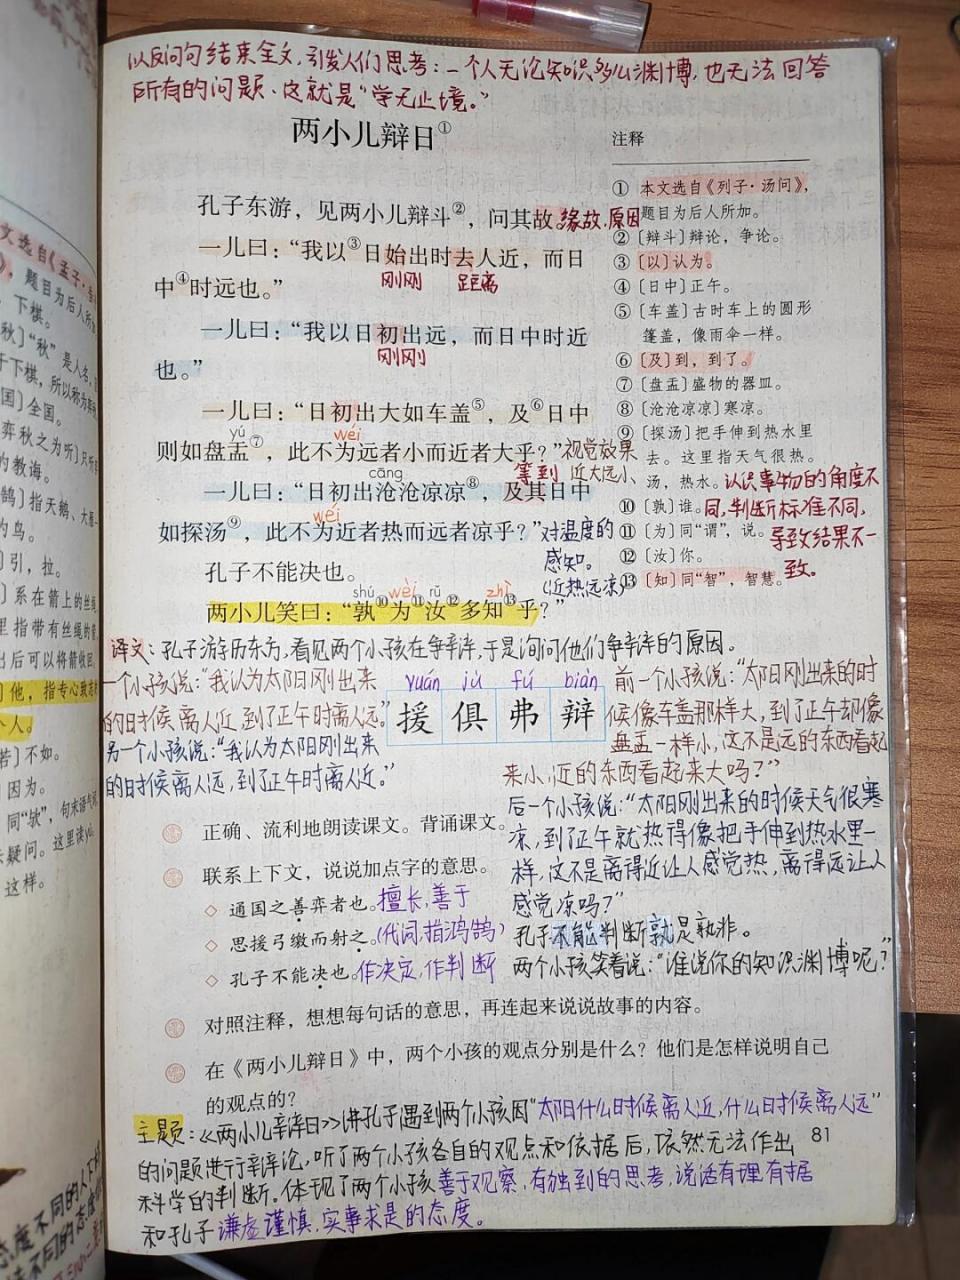 以反问句结束全文,引发人们思考:一个人无论知识多么渊博,也无法回答
所有的问题、这就是“学无止境。”
两小儿辩日①
孔子东游，见两小儿辩斗②，问其故。缘故,原因
一儿曰：“我以③日始出时去人近，而日
刚刚 距离
中④时远也。”
一儿曰：“我以日初出远，而日中时近
刚刚
也。”
一儿曰：“日初出大如车盖⑤，及⑥日中
yú wéi
则如盘盂⑦，此不为远者小而近者大乎？”视觉效果
等到 近大远小
cāng
一儿曰：“日初出沧沧凉凉⑧，及其日中
wéi
如探汤⑨，此不为近者热而远者凉乎？”对温度的
感知。
(近热远凉)
孔子不能决也。
shú wèi rǔ zhì
两小儿笑曰：“孰⑩为⑪汝⑫多知⑬乎？”
注释
① 本文选自《列子·汤问》，
题目为后人所加。
②〔辩斗〕辩论，争论。
③〔以〕认为。
④〔日中〕正午。
⑤〔车盖〕古时车上的圆形
篷盖，像雨伞一样。
⑥〔及〕到，到了。
⑦〔盘盂〕盛物的器皿。
⑧〔沧沧凉凉〕寒凉。
⑨〔探汤〕把手伸到热水里
去。这里指天气很热。
汤，热水。
⑩〔孰〕谁。
⑪〔为〕同“谓”，说。
⑫〔汝〕你。
⑬〔知〕同“智”，智慧。
认识事物的角度不
同,判断标准不同,
导致结果不一
致。
译文:孔子游历东方,看见两个小孩在争辩,于是询问他们争辩的原因。
一个小孩说:“我认为太阳刚出来
的时候离人近,到了正午时离人远。”
另一个小孩说:“我认为太阳刚出来
的时候离人远,到了正午时离人近。”
yuán jù fú biàn
援 俱 弗 辩
前一个小孩说:“太阳刚出来的时
候像车盖那样大,到了正午却像
盘盂一样小,这不是远的东西看起
来小,近的东西看起来大吗?”
后一个小孩说:“太阳刚出来的时候天气很寒
凉,到了正午就热得像把手伸到热水里一
样,这不是离得近让人感觉热,离得远让人
感觉凉吗?”
孔子不能判断孰是孰非。
两个小孩笑着说:“谁说你的知识渊博呢?”
正确、流利地朗读课文。背诵课文。
联系上下文，说说加点字的意思。
◇ 通国之善弈者也。擅长,善于
◇ 思援弓缴而射之。(代词,指鸿鹄)
◇ 孔子不能决也。作决定,作判断
对照注释，想想每句话的意思，再连起来说说故事的内容。
在《两小儿辩日》中，两个小孩的观点分别是什么？他们是怎样说明自己
的观点的？
主题:《两小儿辩日》讲孔子遇到两个小孩因“太阳什么时候离人近,什么时候离人远”
81
的问题进行辩论,听了两个小孩各自的观点和依据后,依然无法作出
科学的判断。体现了两个小孩善于观察,有独到的思考,说话有理有据
和孔子谦虚谨慎,实事求是的态度。
题目为后人所
下棋。
秋〕“秋”是人名
下棋，所以称为
国〕全国。
弈秋之为听〕
的教诲。
鹄〕指天鹅、大雁
为鸟。
引，拉。
〕系在箭上的丝绳
里指带有丝绳的
出后可以将箭收回
〕他，指专心致志
个人。
若〕不如。
因为。
同“欤”，句末语气
疑问。这里读yú
这样。